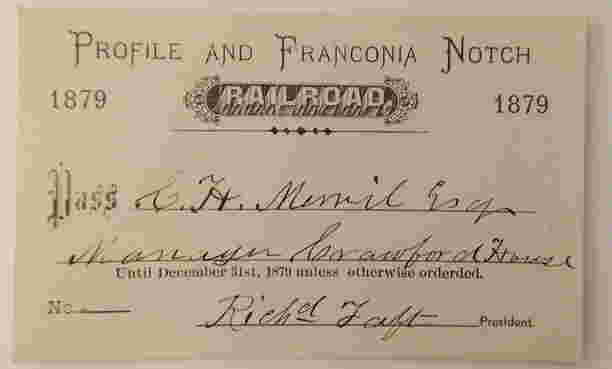 PROFILE AND FRANCONIA NOTCH
1879 RAILROAD. 1879
Pass C. H. Merril Esq
Manager Crawford House
Until December 31st, 1879 unless otherwise orderded.
No Richd Taft President.